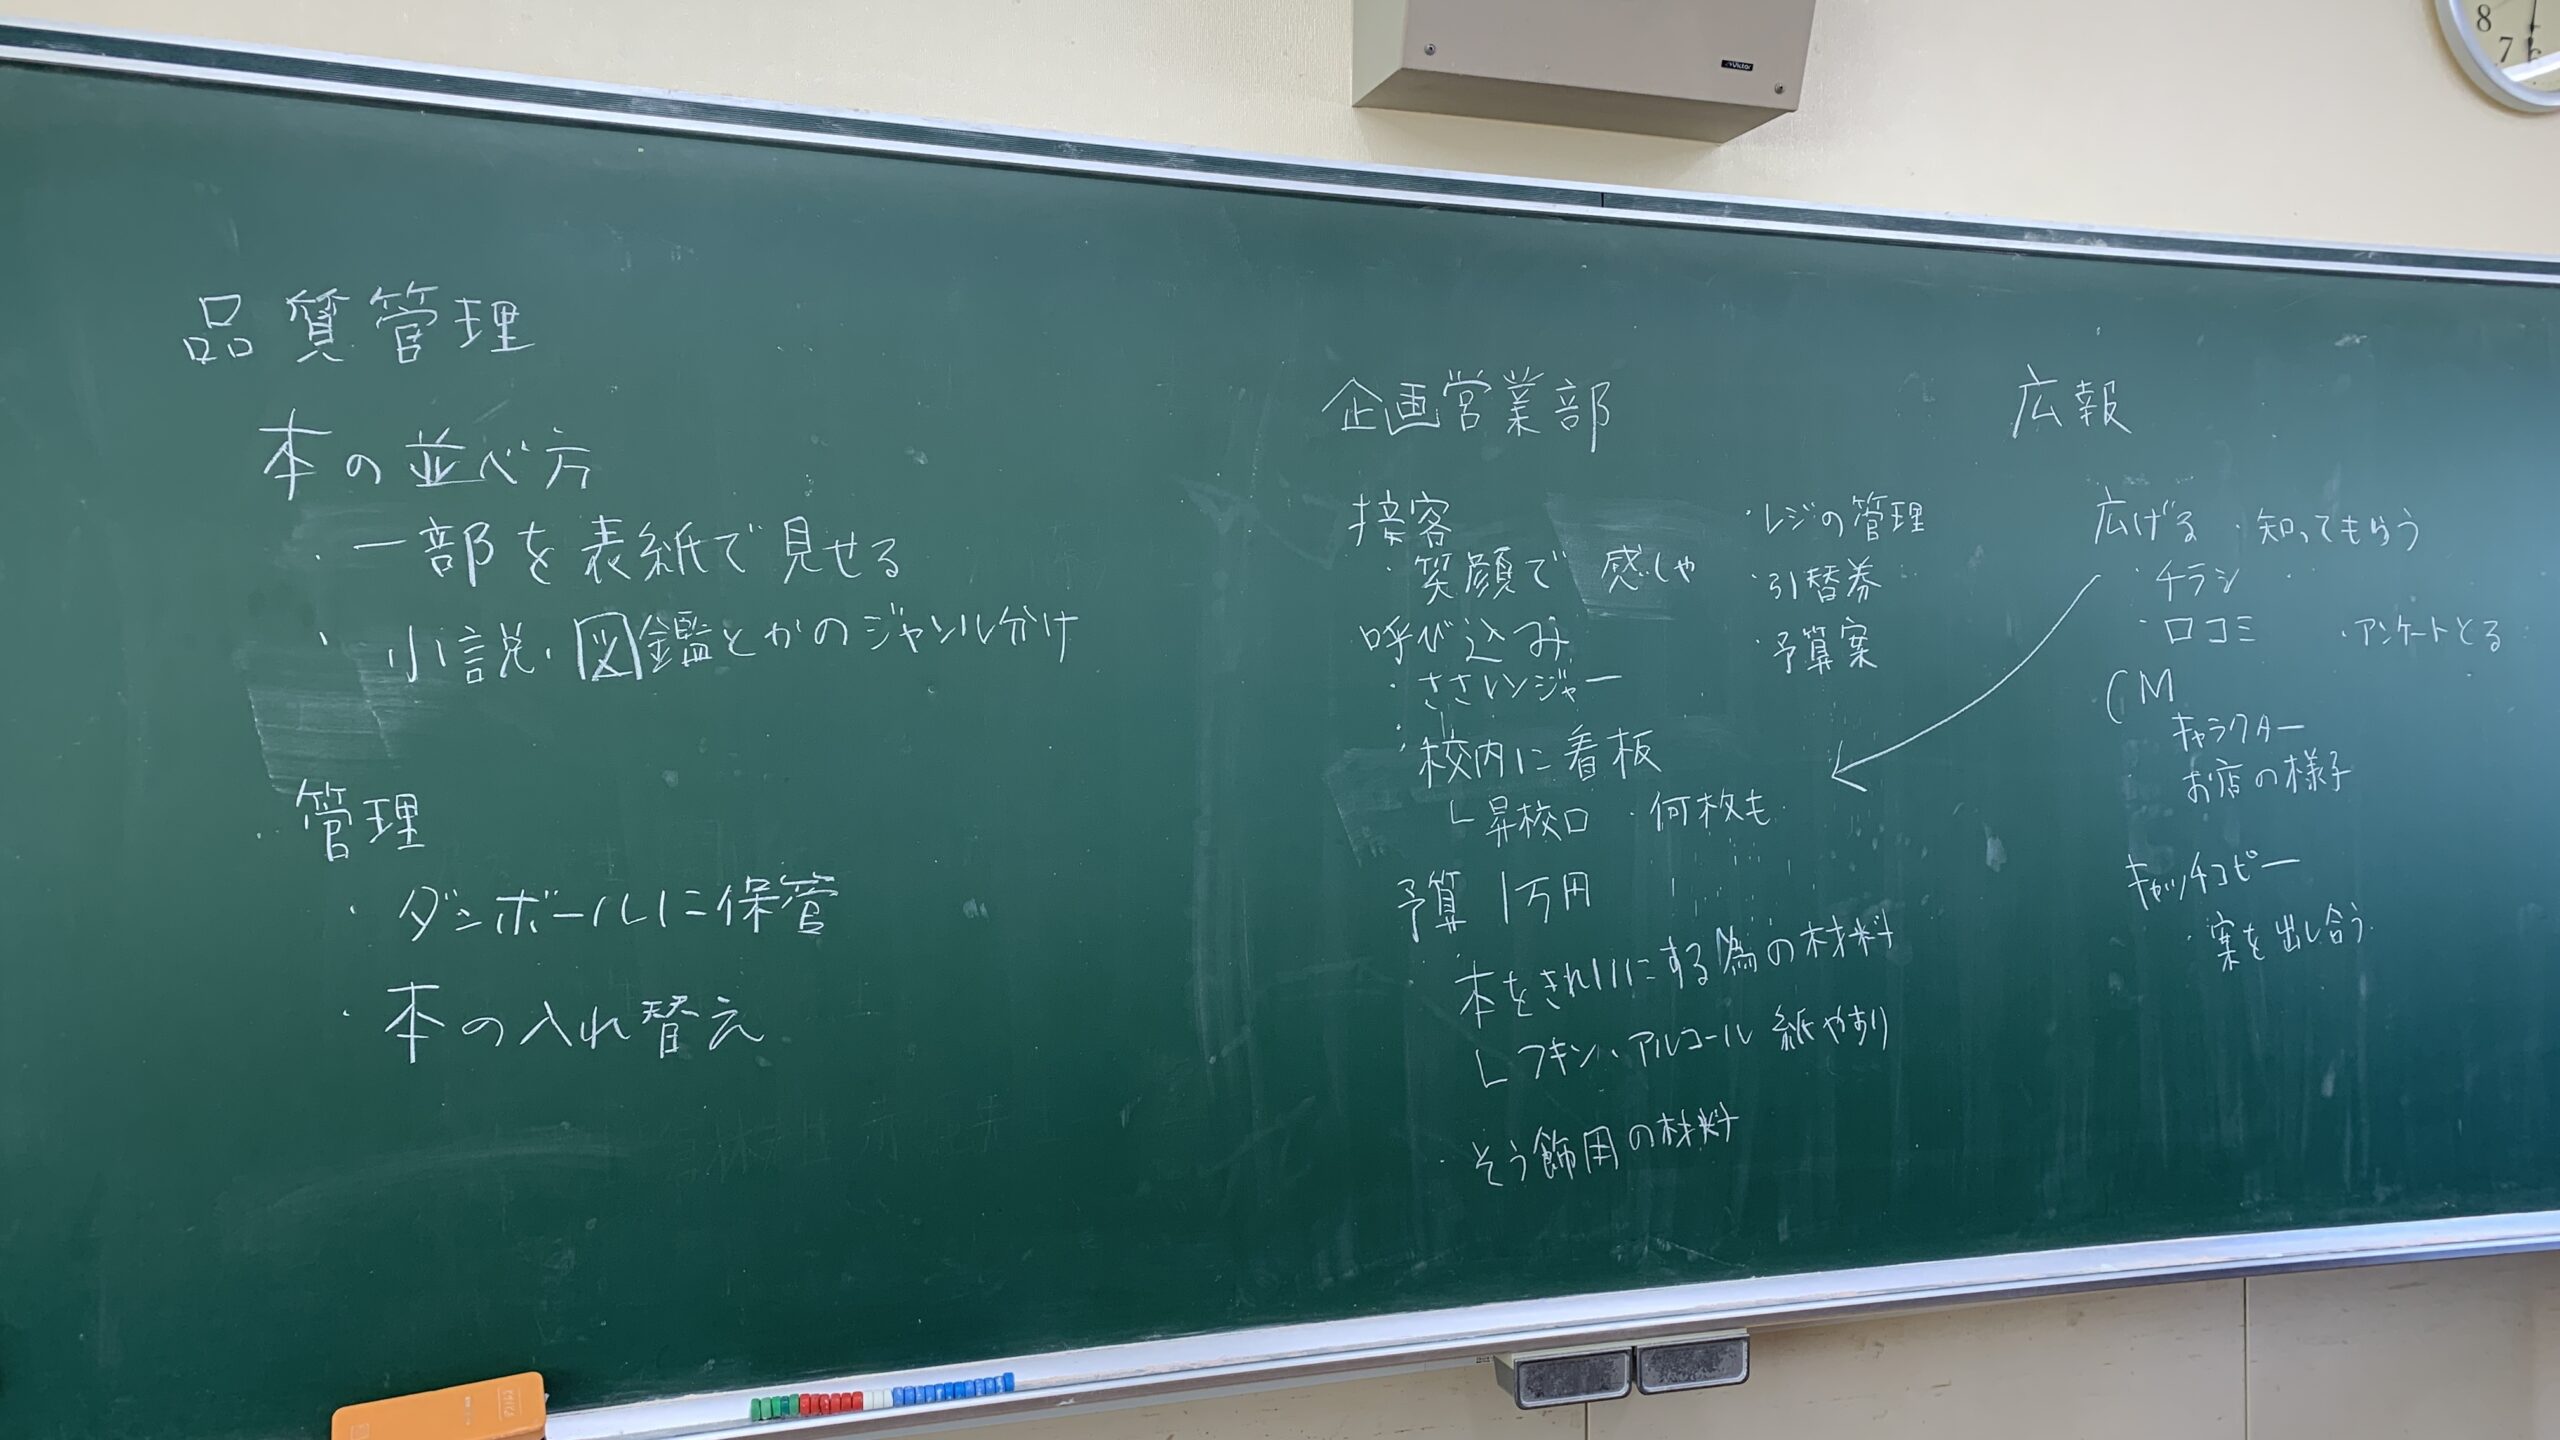 品質管理
本の並べ方
・一部を表紙で見せる
・小説・図鑑とかのジャンル分け
・管理
・ダンボールに保管
・本の入れ替え
企画営業部
接客
・笑顔で 感しゃ
呼び込み
・ささレンジャー
・校内に看板
└昇校口 ・何枚も
予算 1万円
・本をきれいにする為の材料
└フキン、アルコール 紙やすり
・そう飾用の材料
・レジの管理
・引替券
・予算案
広報
広げる ・知ってもらう
・チラシ
・口コミ ・アンケートとる
CM
キャラクター
お店の様子
キャッチコピー
・案を出し合う
Victor
8
7
6